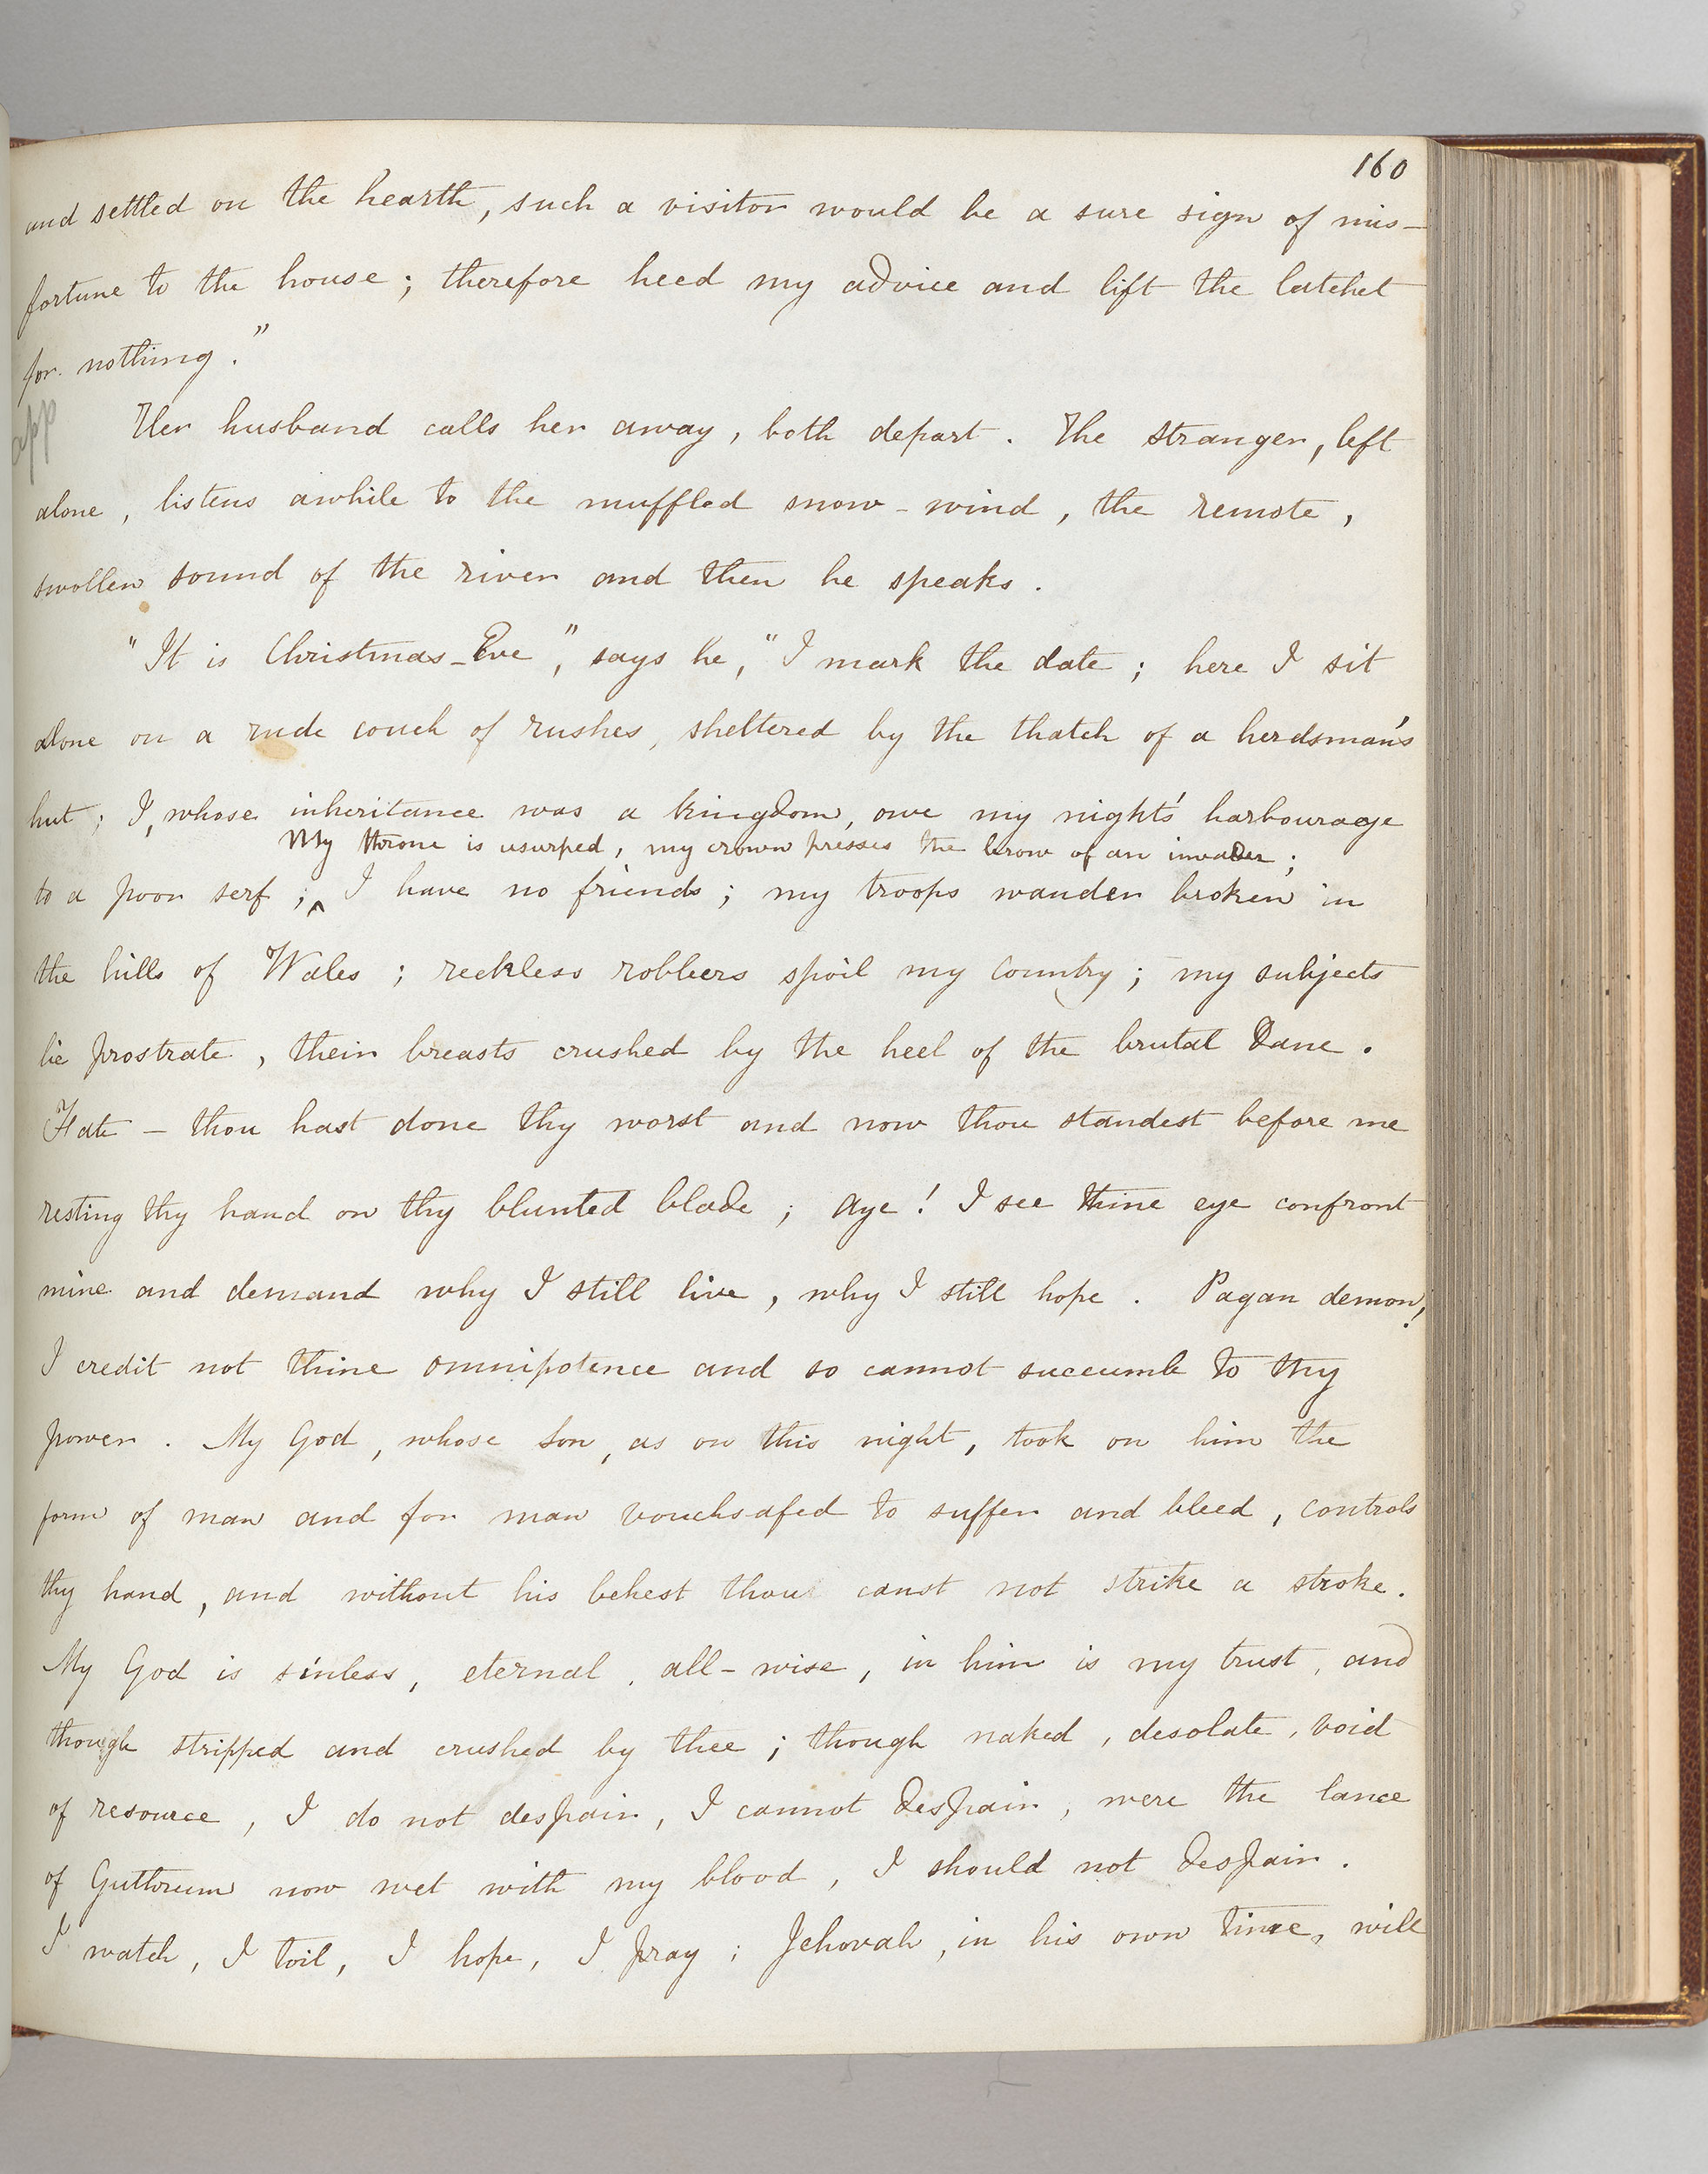 160
and settled on the hearth, such a visitor would be a sure sign of mis-
fortune to the house; therefore heed my advice and lift the latchet
for nothing."
app
Her husband calls her away, both depart. The stranger, left
alone, listens awhile to the muffled snow-wind, the remote,
swollen sound of the river and then he speaks.
"It is Christmas-Eve," says he, "I mark the date; here I sit
alone on a rude couch of rushes, sheltered by the thatch of a herdsman's
hut; I, whose inheritance was a kingdom, owe my night's harbourage
My throne is usurped, my crown presses the brow of an invader;
to a poor serf; ^ I have no friends; my troops wander broken in
the hills of Wales; reckless robbers spoil my country; my subjects
lie prostrate, their breasts crushed by the heel of the brutal Dane.
Fate — thou hast done thy worst and now thou standest before me
resting thy hand on thy blunted blade; Aye! I see thine eye confront
mine and demand why I still live, why I still hope. Pagan demon!
I credit not thine omnipotence and so cannot succumb to thy
power. My God, whose Son, as on this night, took on him the
form of man and for man vouchsafed to suffer and bleed, controls
thy hand, and without his behest thou canst not strike a stroke.
My God is sinless, eternal, all-wise, in him is my trust, and
though stripped and crushed by thee; though naked, desolate, void
of resource, I do not despair, I cannot despair, were the lance
of Guthrum now wet with my blood, I should not despair.
I watch, I toil, I hope, I pray; Jehovah, in his own time, will